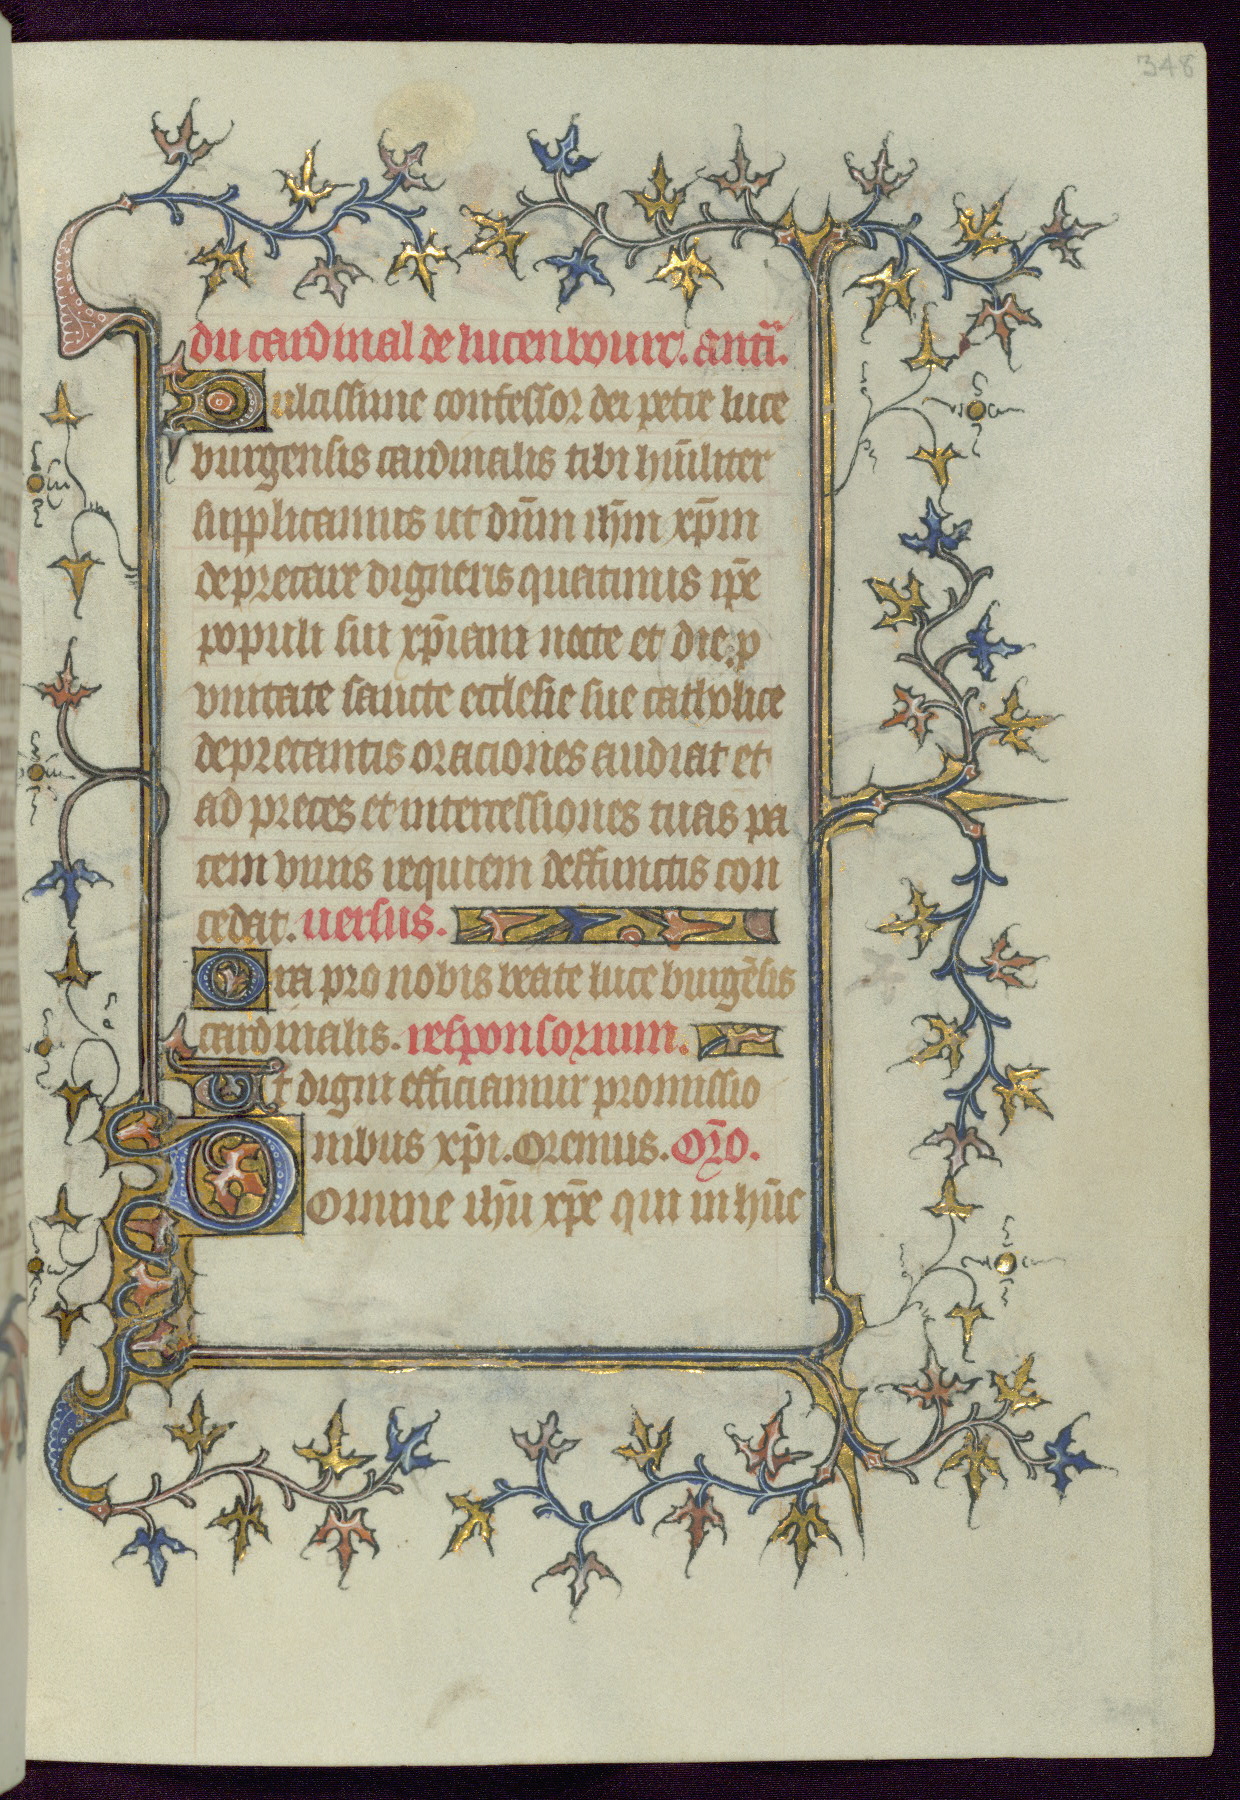 348
du cardinal de lucenbourc. antī.
Dulcissime confessor dei petre luce
burgensis cardinalis tibi hūiliter
supplicamus ut dn̄m ih̄m xp̄m
deprecare digneris quatinus ip̄e
populi sui xp̄iani nocte et die ꝑ
vnitate sancte ecclesie sue catholice
deprecantis oraciones audiat et
ad preces et intercessiones tuas pa
cem viuis requiem deffunctis con
cedat. uersus.
Ora pro nobis beate luce burgēsis
cardinalis. responsorium.
Ut digni efficiamur promissio
nibus xp̄i. Oremus. Or̄o.
Domine ih̄u xp̄e qui in hūc